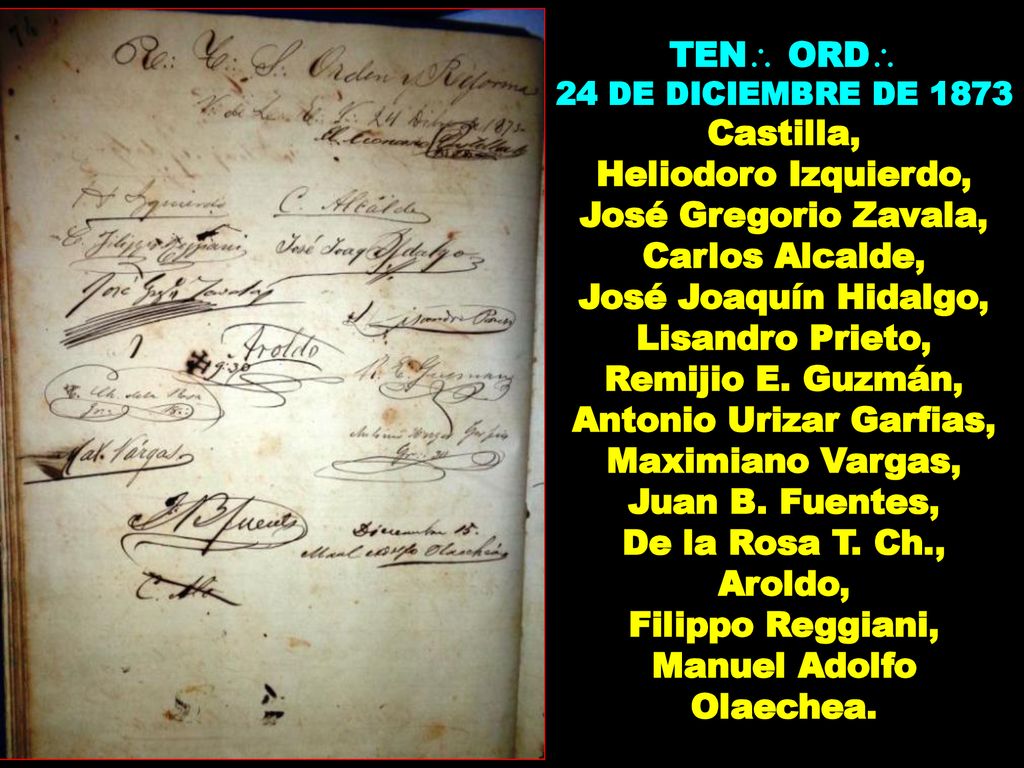 74
R∴ L∴ S∴ Orden y Reforma
V∴ de Lea E∴ V∴ 24 Dibre de 1873
H. Izquierdo
C. Alcalde
E. Filippo Reggiani
José Joaq Hidalgo
José Grego Zavala
Lisandro Prieto
Aroldo
9∴30
R. E. Guzman
T. Ch. de la Rosa
Antonio Urizar Garfias
Gr∴ 30
Max. Vargas
J. B. Fuentes
Diciembre 15.
Manl Adolfo Olaechea
TEN∴ ORD∴
24 DE DICIEMBRE DE 1873
Castilla,
Heliodoro Izquierdo,
José Gregorio Zavala,
Carlos Alcalde,
José Joaquín Hidalgo,
Lisandro Prieto,
Remijio E. Guzmán,
Antonio Urizar Garfias,
Maximiano Vargas,
Juan B. Fuentes,
De la Rosa T. Ch.,
Aroldo,
Filippo Reggiani,
Manuel Adolfo
Olaechea.